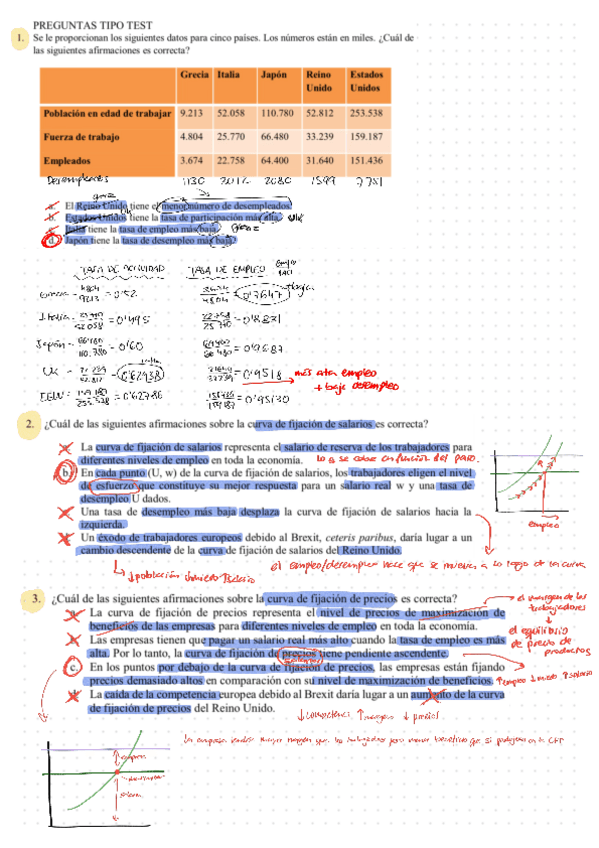 PREGUNTAS TIPO TEST
1. Se le proporcionan los siguientes datos para cinco países. Los números están en miles. ¿Cuál de
las siguientes afirmaciones es correcta?
Grecia Italia Japón Reino Unido Estados Unidos
Población en edad de trabajar 9.213 52.058 110.780 52.812 253.538
Fuerza de trabajo 4.804 25.770 66.480 33.239 159.187
Empleados 3.674 22.758 64.400 31.640 151.436
Desempleados 1130 3012 2080 1599 7751
a. El Reino Unido tiene el menor número de desempleados.
b. Estados Unidos tiene la tasa de participación más alta. UK
c. Italia tiene la tasa de empleo más baja. Grecia
d. Japón tiene la tasa de desempleo más baja?
TASA DE ACTIVIDAD TASA DE EMPLEO
Grecia 4804 / 9213 = 0'52 3674 / 4804 = 0'7647 + baja
Italia = 25770 / 52058 = 0'495 22758 / 25770 = 0'8831
Japón = 66480 / 110.780 = 0'60 64400 / 66480 = 0'9687
UK = 0'62938 = 0'9518 más alta empleo
+ baja desempleo
EEUU = 0'62786 = 0'95130
2. ¿Cuál de las siguientes afirmaciones sobre la curva de fijación de salarios es correcta?
La curva de fijación de salarios representa el salario de reserva de los trabajadores para
diferentes niveles de empleo en toda la economía.
b. En cada punto (U, w) de la curva de fijación de salarios, los trabajadores eligen el nivel
de esfuerzo que constituye su mejor respuesta para un salario real w y una tasa de
desempleo U dados.
Una tasa de desempleo más baja desplaza la curva de fijación de salarios hacia la
izquierda.
empleo
Un éxodo de trabajadores europeos debido al Brexit, ceteris paribus, daría lugar a un
cambio descendente de la curva de fijación de salarios del Reino Unido.
el empleo/desempleo hace que se mueva a lo largo de la curva
↓ población
3. ¿Cuál de las siguientes afirmaciones sobre la curva de fijación de precios es correcta?
el margen de los
trabajadores
La curva de fijación de precios representa el nivel de precios de maximización de
beneficios de las empresas para diferentes niveles de empleo en toda la economía.
el equilibrio
de precio de
productos
Las empresas tienen que pagar un salario real más alto cuando la tasa de empleo es más
alta. Por lo tanto, la curva de fijación de precios tiene pendiente ascendente.
salarios
c. En los puntos por debajo de la curva de fijación de precios, las empresas están fijando
precios demasiado altos en comparación con su nivel de maximización de beneficios.
La caída de la competencia europea debido al Brexit daría lugar a un aumento de la curva
de fijación de precios del Reino Unido.
↓ competencia ↑ margen ↓